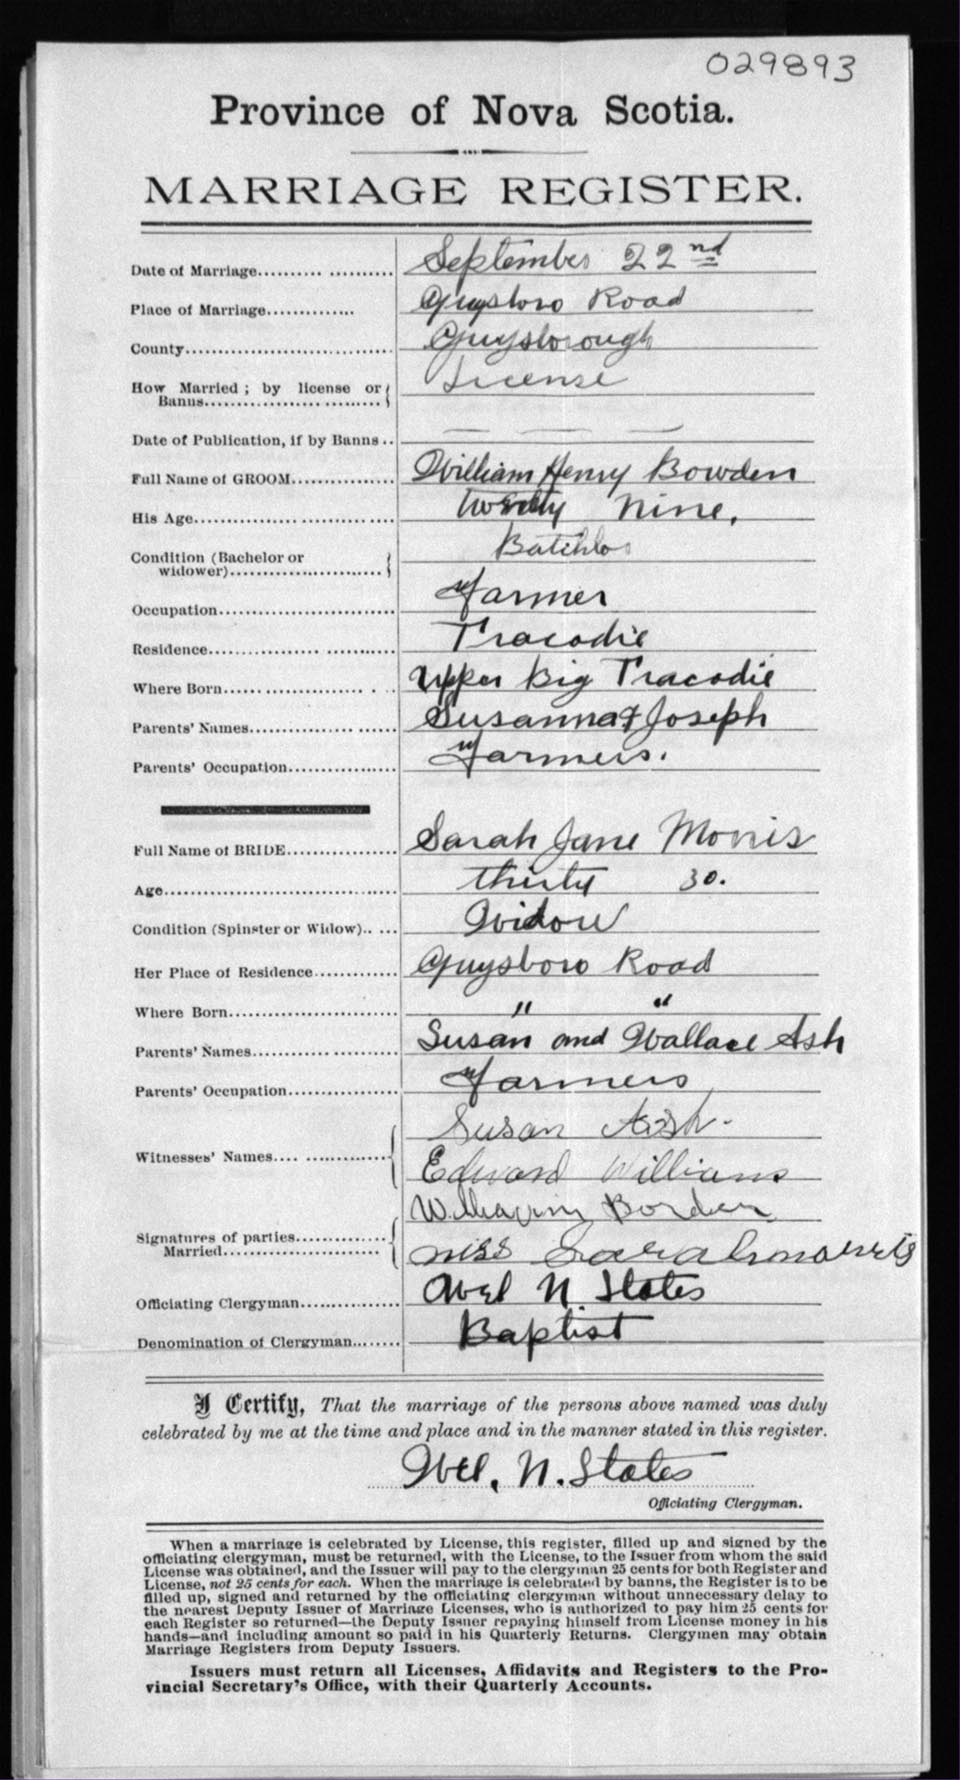 029893
Province of Nova Scotia.
MARRIAGE REGISTER.
Date of Marriage.......... .......... September 22nd
Place of Marriage............. Guysboro Road
County............................... Guysborough
How Married ; by license or License
Banns.................... .........
Date of Publication, if by Banns .. — — —
Full Name of GROOM................ William Henry Bowden
His Age.............................. Nine,
Condition (Bachelor or Batchlor
widower)..........................
Occupation........................... Farmer
Residence............................ Tracadie
Where Born...................... . .. Upper Big Tracadie
Parents' Names...................... Susanna & Joseph
Parents' Occupation................ Farmers.
Full Name of BRIDE................ Sarah Jane Morris
Age................................... thirty 30.
Condition (Spinster or Widow).. ... Widow
Her Place of Residence............ Guysboro Road
Where Born......................... " "
Parents' Names...................... Susan and Wallace Ash
Parents' Occupation................ Farmers
Susan Ash-
Witnesses' Names.... ............ Edward Williams
Borden
Signatures of parties.............
Married........................ miss Sarah
Officiating Clergyman.............. N. States
Denomination of Clergyman....... Baptist
I Certify, That the marriage of the persons above named was duly
celebrated by me at the time and place and in the manner stated in this register.
N. States
Officiating Clergyman.
When a marriage is celebrated by License, this register, filled up and signed by the
officiating clergyman, must be returned, with the License, to the Issuer from whom the said
License was obtained, and the Issuer will pay to the clergyman 25 cents for both Register and
License, not 25 cents for each. When the marriage is celebrated by banns, the Register is to be
filled up, signed and returned by the officiating clergyman without unnecessary delay to
the nearest Deputy Issuer of Marriage Licenses, who is authorized to pay him 25 cents for
each Register so returned—the Deputy Issuer repaying himself from License money in his
hands—and including amount so paid in his Quarterly Returns. Clergymen may obtain
Marriage Registers from Deputy Issuers.
Issuers must return all Licenses, Affidavits and Registers to the Pro-
vincial Secretary's Office, with their Quarterly Accounts.